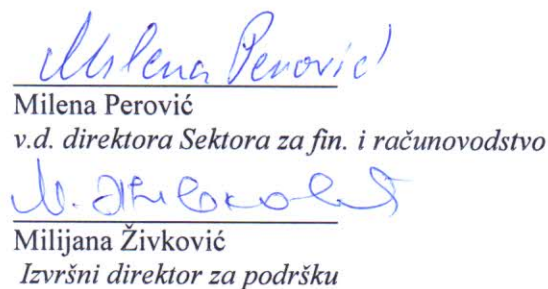 Milena Perović
Milena Perović
v.d. direktora Sektora za fin. i računovodstvo
M. Živković
Milijana Živković
Izvršni direktor za podršku